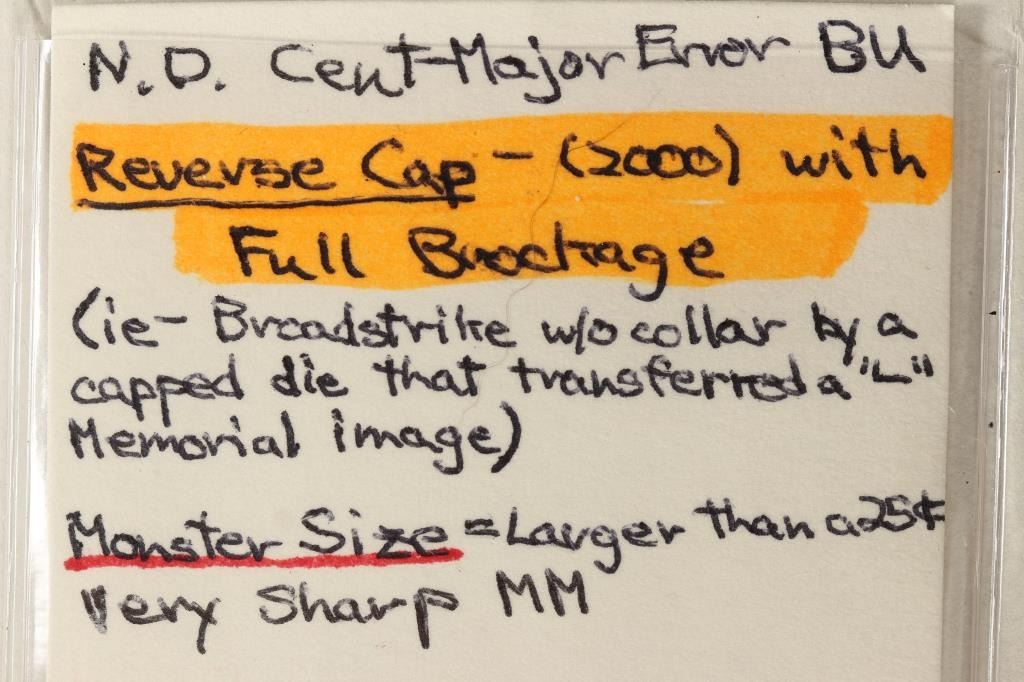 N.D. Cent-Major Error BU
Reverse Cap - (2000) with
Full Brockage
(ie- Broadstrike w/o collar by a
capped die that transferred a "L"
Memorial image)
Monster Size = Larger than a 25¢
Very Sharp MM